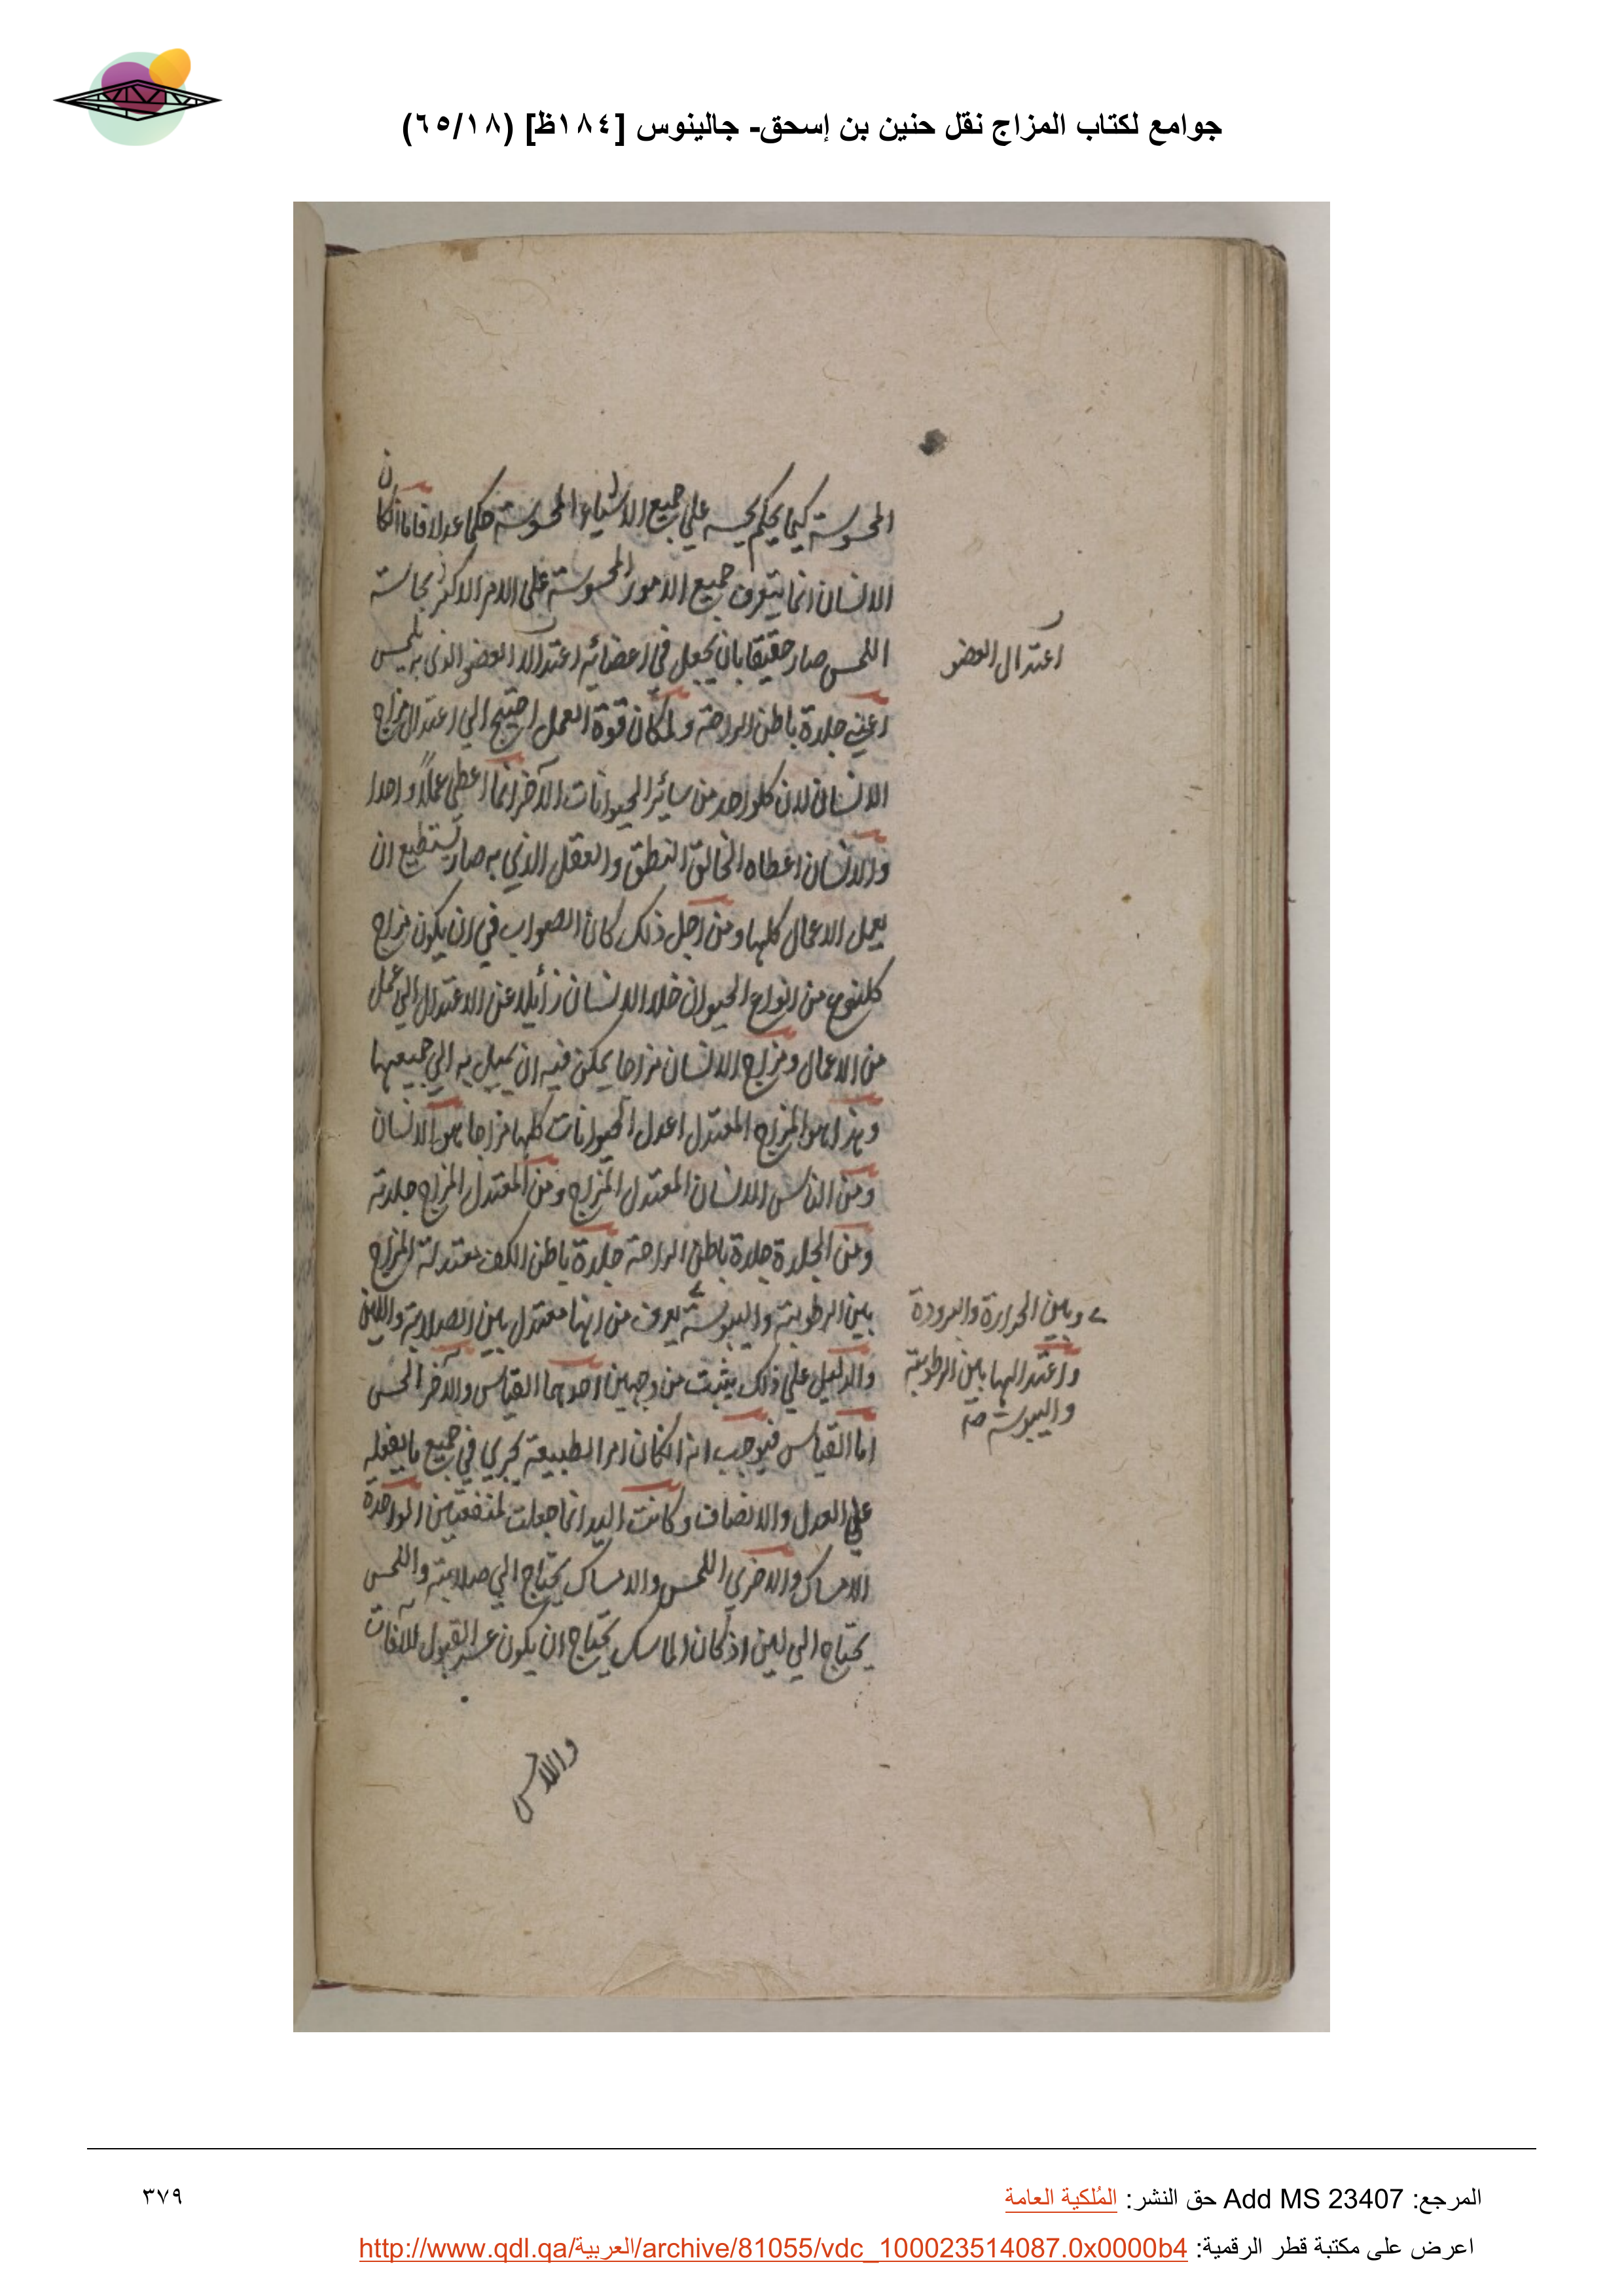 جوامع لكتاب المزاج نقل حنين بن إسحق- جالينوس [١٨٤ظ] (٦٥/١٨)
المحسوسة كيما يحكم بحسه علي جميع الاشياء المحسوسة حكما عدلا فاما اذ كان
الانسان انما يتعرف جميع الامور المحسوسة علي الامر الاكثر بحاسة
اللمس صار حقيقا بان يجعل في اعضائه اعتدالا العضو الذي به يلمس
اعني جلدة باطن الراحة ولمكان قوة العمل احتيج الي اعتدال مزاج
الانسان لان كلواحد من سائر الحيوانات الآخر انما اعطي عملاً واحدا
والانسان اعطاه الخالق النطق والعقل الذي به صار يستطيع ان
يعمل الاعمال كلها ومن اجل ذلك كان الصواب في ان يكون مزاج
كلنوع من انواع الحيوان خلا الانسان زائلا عن الاعتدال الي عمل
من الاعمال ومزاج الانسان مزاجا يمكن فيه ان يميل به الي جميعها
وهذا هو المزاج المعتدل اعدل الحيوانات كلها مزاجا هو الانسان
ومن الناس الانسان المعتدل المزاج ومن المعتدل المزاج جلدته
ومن الجلدة جلدة باطن الراحة جلدة باطن الكف معتدلة المزاج
بين الرطوبة واليبوسة يعرف من انها معتدل بين الصلابة واللين
والدليل علي ذلك يثبت من وجهين احدهما القياس والآخر الحس
اما القياس فيوجب انه انكان امر الطبيعة يجري في جميع ما يفعله
علي العدل والانصاف وكانت اليد انما جعلت لمنفعتين الواحدة
الامساك والاخري اللمس والامساك يحتاج الي صلابة واللمس
يحتاج الي لين اذ كان الماسك يحتاج ان يكون عسر القبول للآفات
واللامس
اعتدال العضو
وبين الحرارة والبرودة
واعتدالها بين الرطوبة
واليبوسة صح
المرجع: Add MS 23407 حق النشر: المُلكية العامة
٣٧٩
اعرض على مكتبة قطر الرقمية: http://www.qdl.qa/العربية/archive/81055/vdc_100023514087.0x0000b4